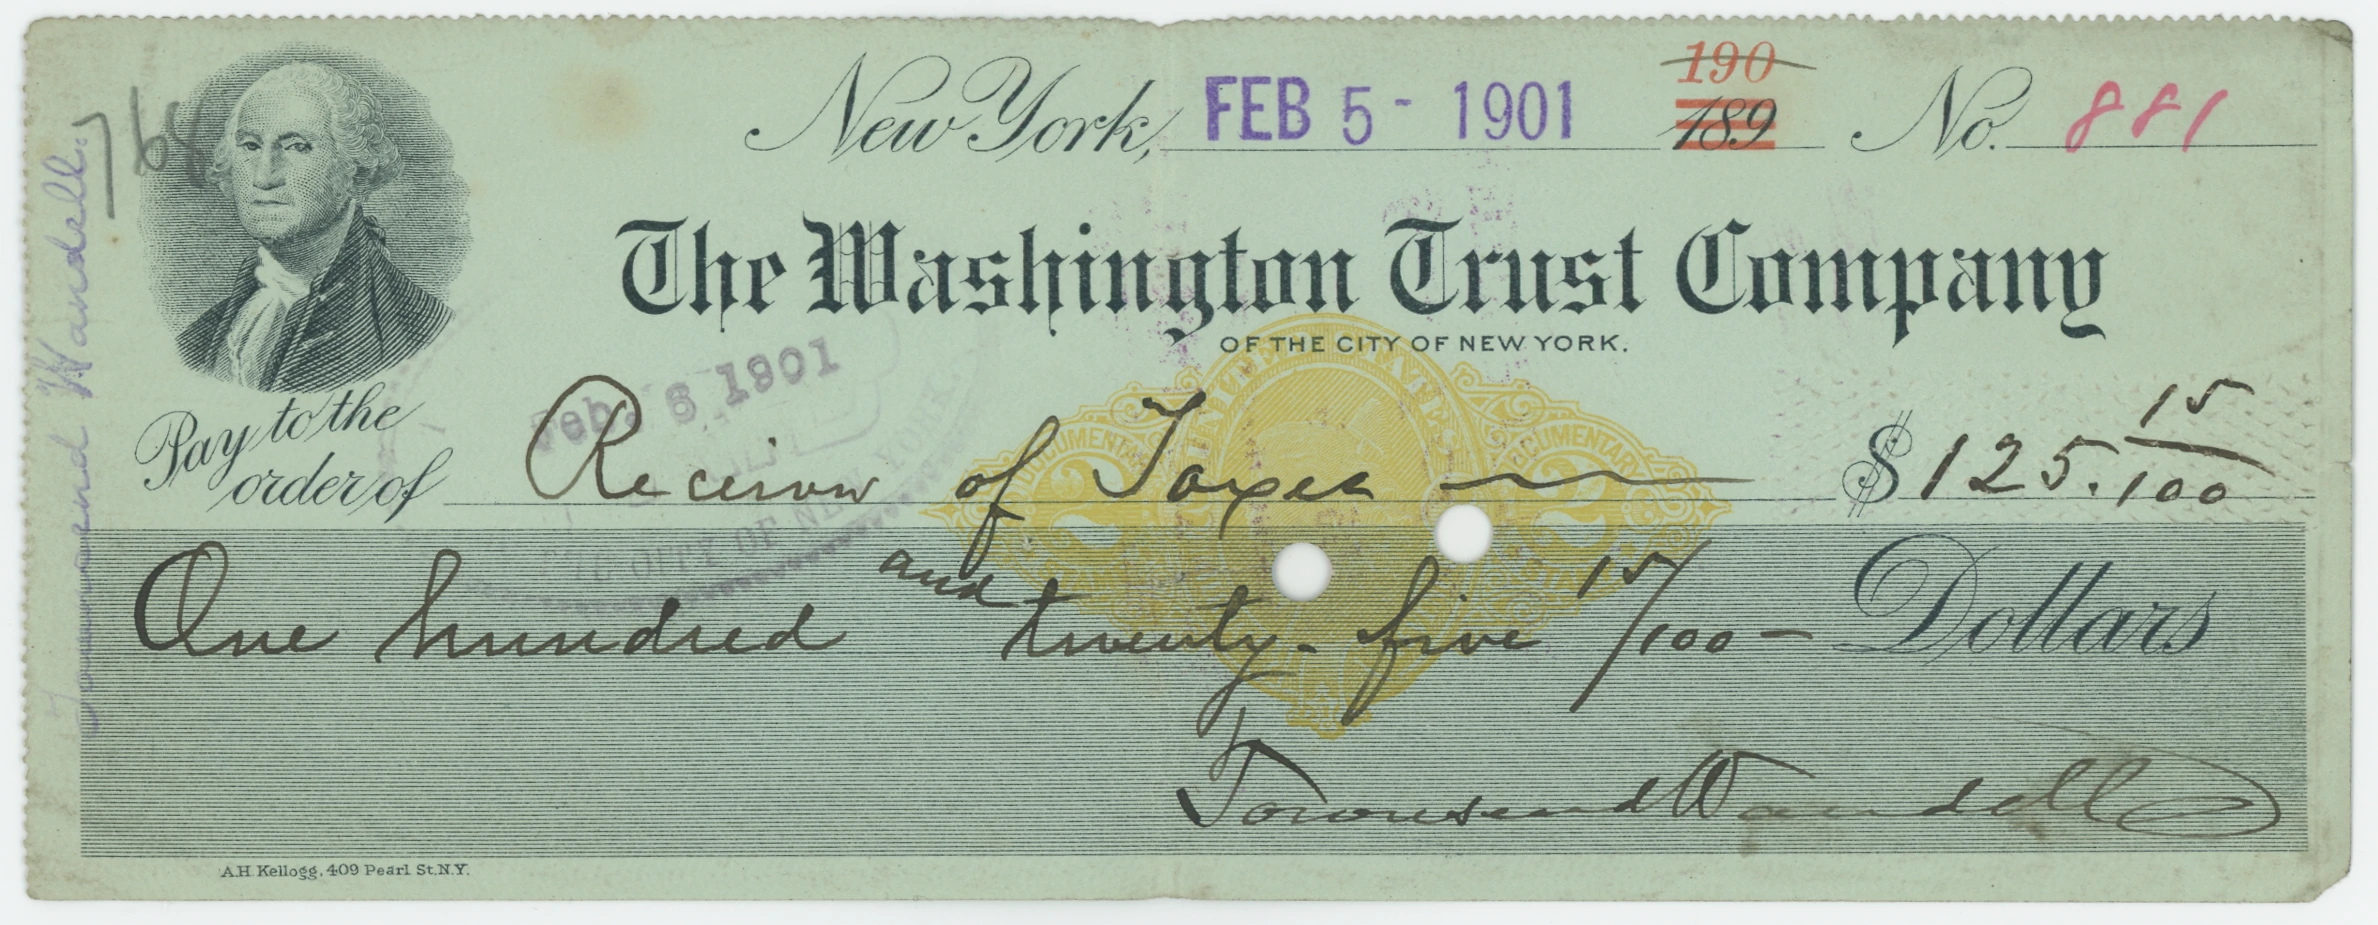 190
New York, FEB 5 - 1901 189 No. 881
768
Townsend Wandell.
The Washington Trust Company
OF THE CITY OF NEW YORK.
Feb. 8 1901
Pay to the
order of Receiver of Taxes $125.15/100
DOCUMENTARY UNITED STATES DOCUMENTARY
2 2
CITY OF NEW YORK
One hundred and twenty-five 15/100 - Dollars
Townsend Wandell
A.H. Kellogg, 409 Pearl St. N.Y.